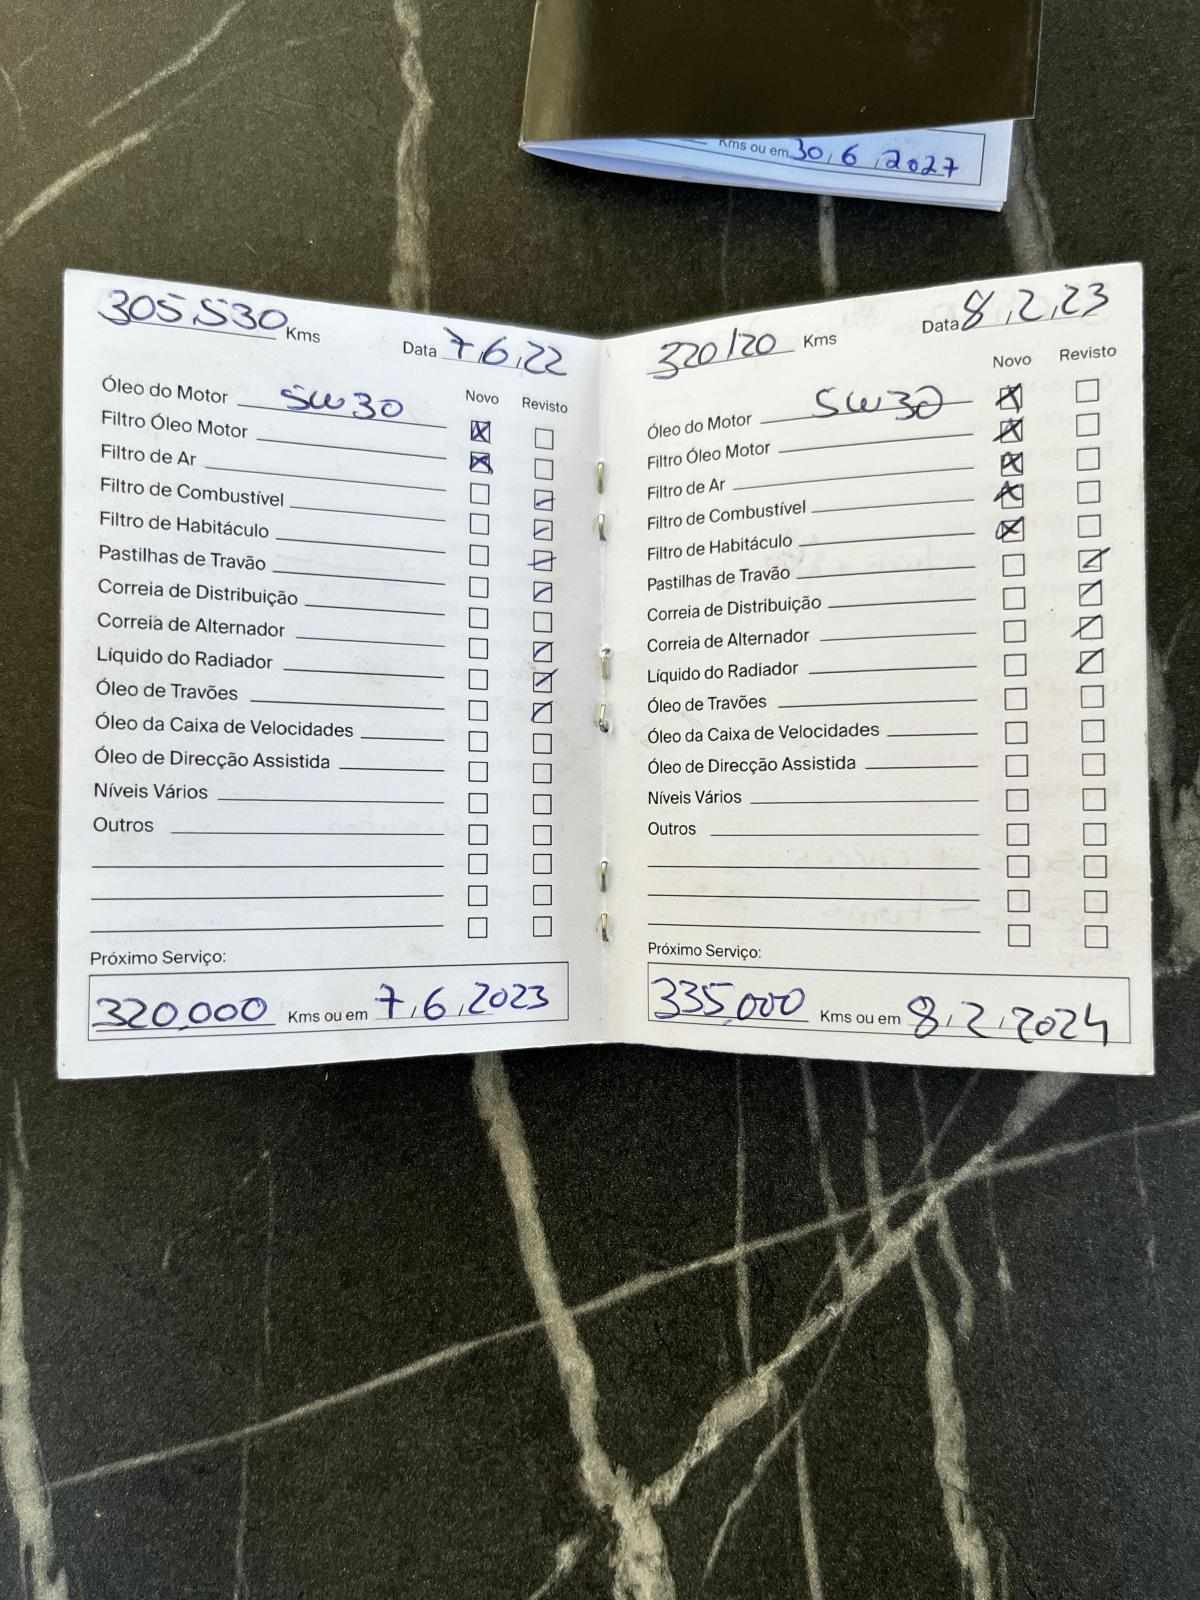 Kms ou em 30,6,2027
305,530 Kms Data 7,6,22
Novo Revisto
Óleo do Motor 5W30
Filtro Óleo Motor
Filtro de Ar
Filtro de Combustível
Filtro de Habitáculo
Pastilhas de Travão
Correia de Distribuição
Correia de Alternador
Líquido do Radiador
Óleo de Travões
Óleo da Caixa de Velocidades
Óleo de Direcção Assistida
Níveis Vários
Outros
Próximo Serviço:
320,000 Kms ou em 7,6,2023
320120 Kms Data 8,2,23
Novo Revisto
Óleo do Motor 5W30
Filtro Óleo Motor
Filtro de Ar
Filtro de Combustível
Filtro de Habitáculo
Pastilhas de Travão
Correia de Distribuição
Correia de Alternador
Líquido do Radiador
Óleo de Travões
Óleo da Caixa de Velocidades
Óleo de Direcção Assistida
Níveis Vários
Outros
Próximo Serviço:
335,000 Kms ou em 8,2,2024